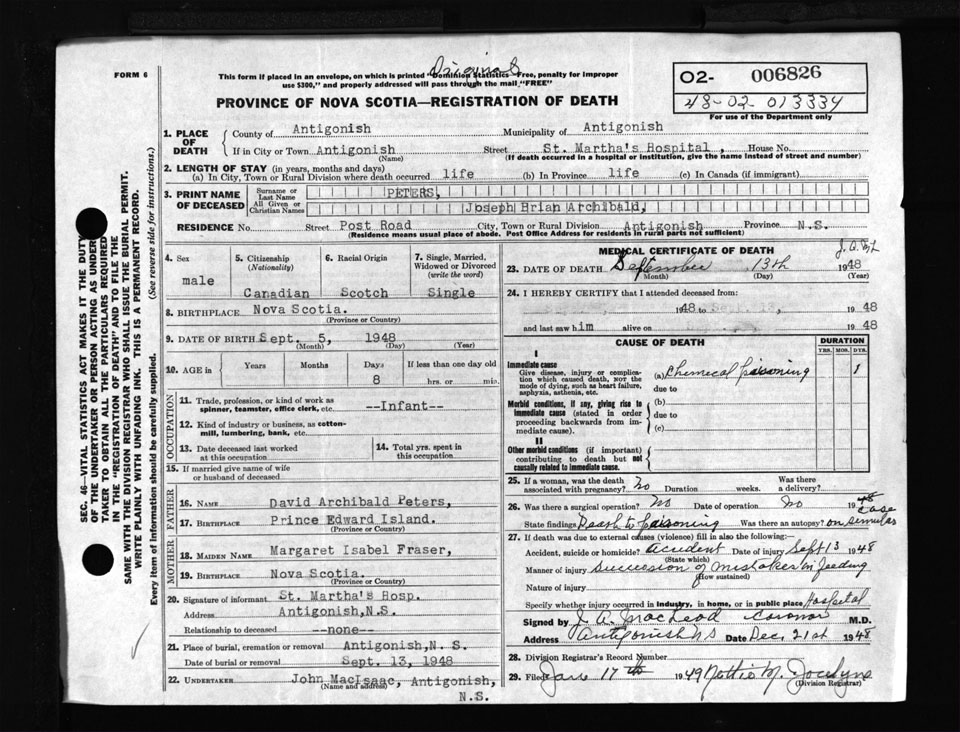 FORM 6
Original
This form if placed in an envelope, on which is printed "Dominion Statistics—Free, penalty for improper
use $300," and properly addressed will pass through the mail "FREE"
PROVINCE OF NOVA SCOTIA—REGISTRATION OF DEATH
O2- 006826
48-02-013334
For use of the Department only
1. PLACE OF DEATH
County of Antigonish Municipality of Antigonish
If in City or Town Antigonish Street St. Martha's Hospital, House No.
(Name) (If death occurred in a hospital or institution, give the name instead of street and number)
2. LENGTH OF STAY (in years, months and days)
(a) In City, Town or Rural Division where death occurred life (b) In Province life (c) In Canada (if immigrant)
3. PRINT NAME OF DECEASED
Surname or Last Name PETERS,
All Given or Christian Names Joseph Brian Archibald,
RESIDENCE No. Street Post Road City, Town or Rural Division Antigonish Province N.S.
(Residence means usual place of abode. Post Office Address for residents in rural parts not sufficient)
4. Sex male
5. Citizenship (Nationality) Canadian
6. Racial Origin Scotch
7. Single, Married, Widowed or Divorced (write the word) Single
8. BIRTHPLACE Nova Scotia.
(Province or Country)
9. DATE OF BIRTH Sept. 5, 1948
(Month) (Day) (Year)
10. AGE in Years Months Days 8 If less than one day old hrs. or min.
OCCUPATION
11. Trade, profession, or kind of work as spinner, teamster, office clerk, etc. --Infant--
12. Kind of industry or business, as cotton-mill, lumbering, bank, etc.
13. Date deceased last worked at this occupation
14. Total yrs. spent in this occupation
15. If married give name of wife or husband of deceased
FATHER
16. NAME David Archibald Peters,
17. BIRTHPLACE Prince Edward Island.
(Province or Country)
MOTHER
18. MAIDEN NAME Margaret Isabel Fraser,
19. BIRTHPLACE Nova Scotia.
(Province or Country)
20. Signature of informant St. Martha's Hosp.
Address Antigonish,N.S.
Relationship to deceased --none--
21. Place of burial, cremation or removal Antigonish,N. S.
Date of burial or removal Sept. 13, 1948
22. UNDERTAKER John MacIsaac, Antigonish,
(Name and address) N.S.
MEDICAL CERTIFICATE OF DEATH
23. DATE OF DEATH September 13th 1948
(Month) (Day) (Year)
24. I HEREBY CERTIFY that I attended deceased from
1948 to Sept. 13, 1948
and last saw him alive on 1948
CAUSE OF DEATH
DURATION
YRS. MOS. DYS.
I
Immediate cause
Give disease, injury or complication which caused death, not the mode of dying, such as heart failure, asphyxia, asthenia, etc.
(a) Chemical poisoning 1
due to
Morbid conditions, if any, giving rise to immediate cause (stated in order proceeding backwards from immediate cause).
(b)
due to
(c)
II
Other morbid conditions (if important) contributing to death but not causally related to immediate cause.
25. If a woman, was the death associated with pregnancy? No Duration weeks. Was there a delivery?
26. Was there a surgical operation? No Date of operation No 1948
State findings Death to poisoning Was there an autopsy? on similar case
27. If death was due to external causes (violence) fill in also the following:—
Accident, suicide or homicide? accident Date of injury Sept 13 1948
(State which)
Manner of injury Succession of mistakes in feeding
(How sustained)
Nature of injury
Specify whether injury occurred in industry, in home, or in public place Hospital
Signed by J. A. MacLeod Coroner M.D.
Address Antigonish NS Date Dec. 21st 1948
28. Division Registrar's Record Number
29. Filed Jan. 17th 1949
(Division Registrar)
SEC. 46—VITAL STATISTICS ACT MAKES IT THE DUTY
OF THE UNDERTAKER OR PERSON ACTING AS UNDER
TAKER TO OBTAIN ALL THE PARTICULARS REQUIRED
IN THE "REGISTRATION OF DEATH" AND TO FILE THE
SAME WITH THE DIVISION REGISTRAR WHO SHALL ISSUE THE BURIAL PERMIT.
WRITE PLAINLY WITH UNFADING INK. THIS IS A PERMANENT RECORD.
Every item of Information should be carefully supplied. (See reverse side for instructions.)